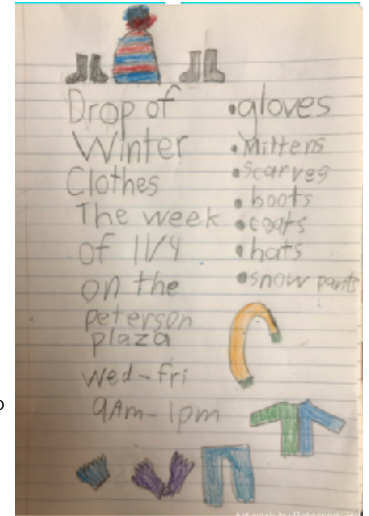 Drop of
Winter
Clothes
The week
of 11/4
on the
peterson
plaza
wed-fri
9Am-1pm
•gloves
•Mittens
•scarves
•boots
•coats
•hats
•snow pants
Artwork by Peterson